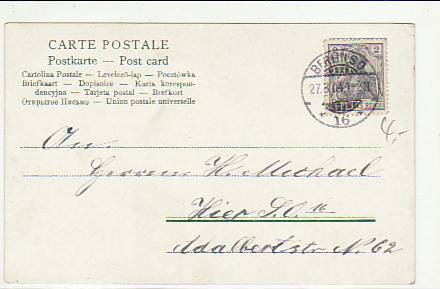 CARTE POSTALE
Postkarte — Post card
Cartolina Postale — Levelező-lap — Pocztówka
Briefkaart — Dopisnice — Karta korespon-
dencyjna — Tarjeta postal — Brefkort
Открытое Письмо — Union postale universelle
2
BERLIN S.O.
27.3.04
16
4,-
An
Herrn W. Michael
Hier S.O. 16
Adalbertstr N. 62